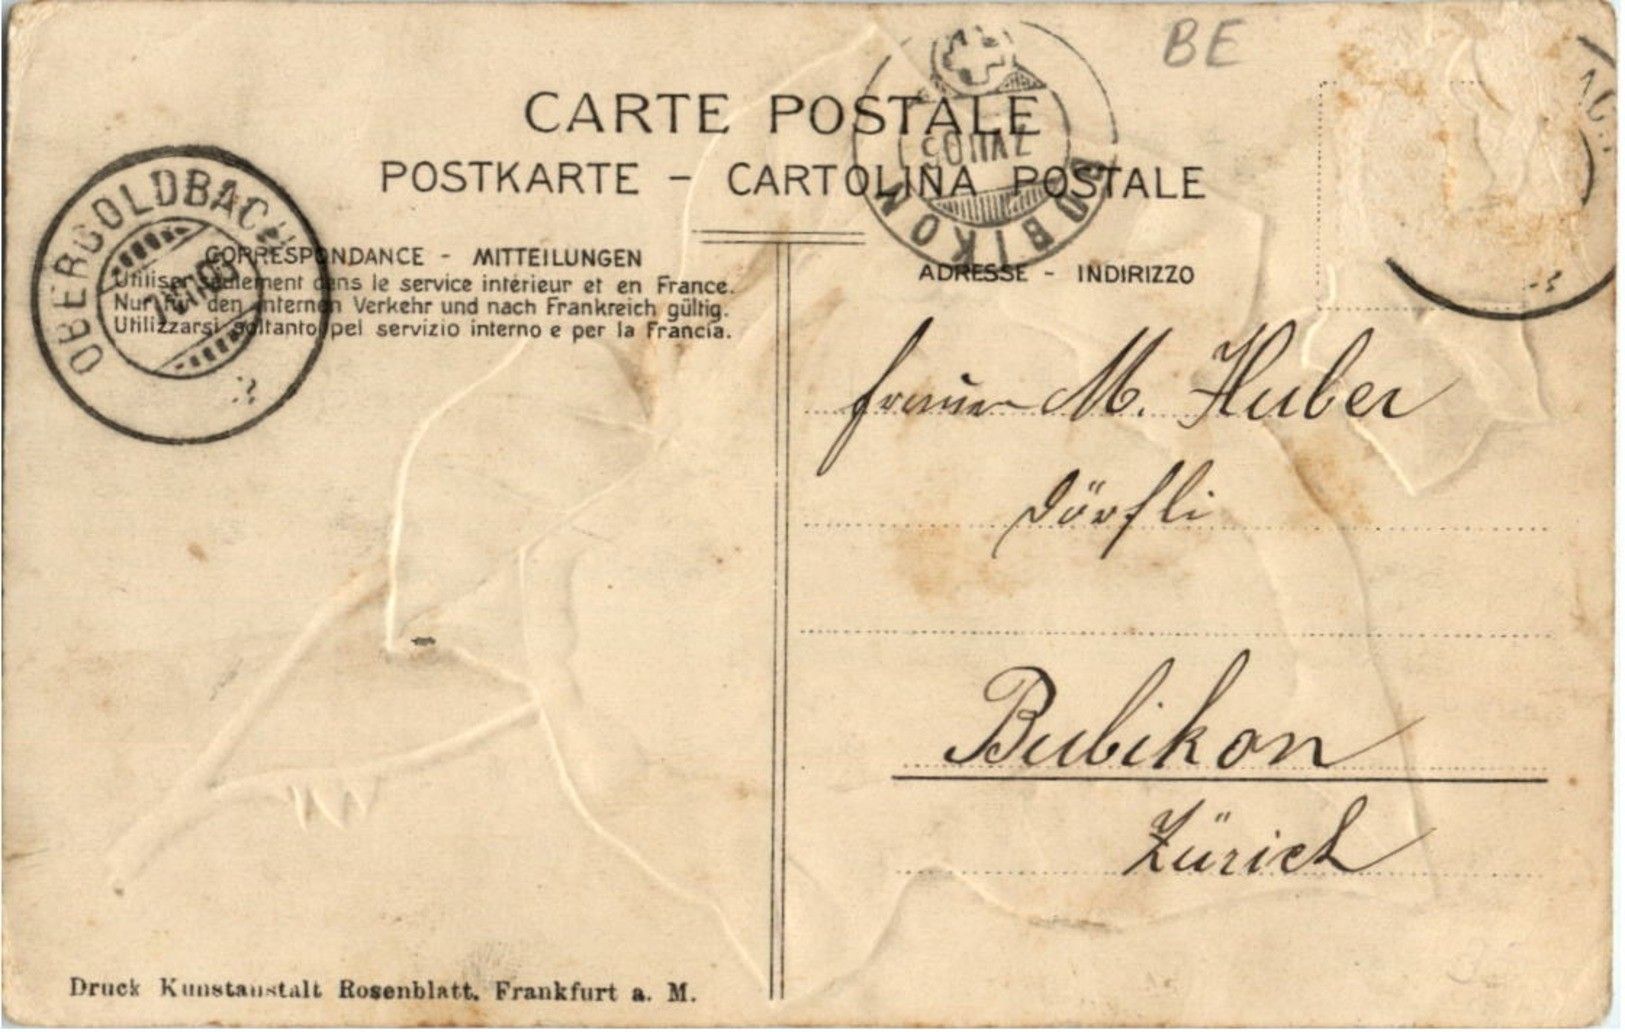 BE
CARTE POSTALE
POSTKARTE - CARTOLINA POSTALE
BUBIKON
7 VII 05
OBERGOLDBACH
CORRESPONDANCE - MITTEILUNGEN
Utiliser seulement dans le service intérieur et en France.
Nur für den internen Verkehr und nach Frankreich gültig.
Utilizzarsi soltanto pel servizio interno e per la Francia.
ADRESSE - INDIRIZZO
M. Huber
Dörfli
Bubikon
Zürich
Druck Kunstanstalt Rosenblatt, Frankfurt a. M.